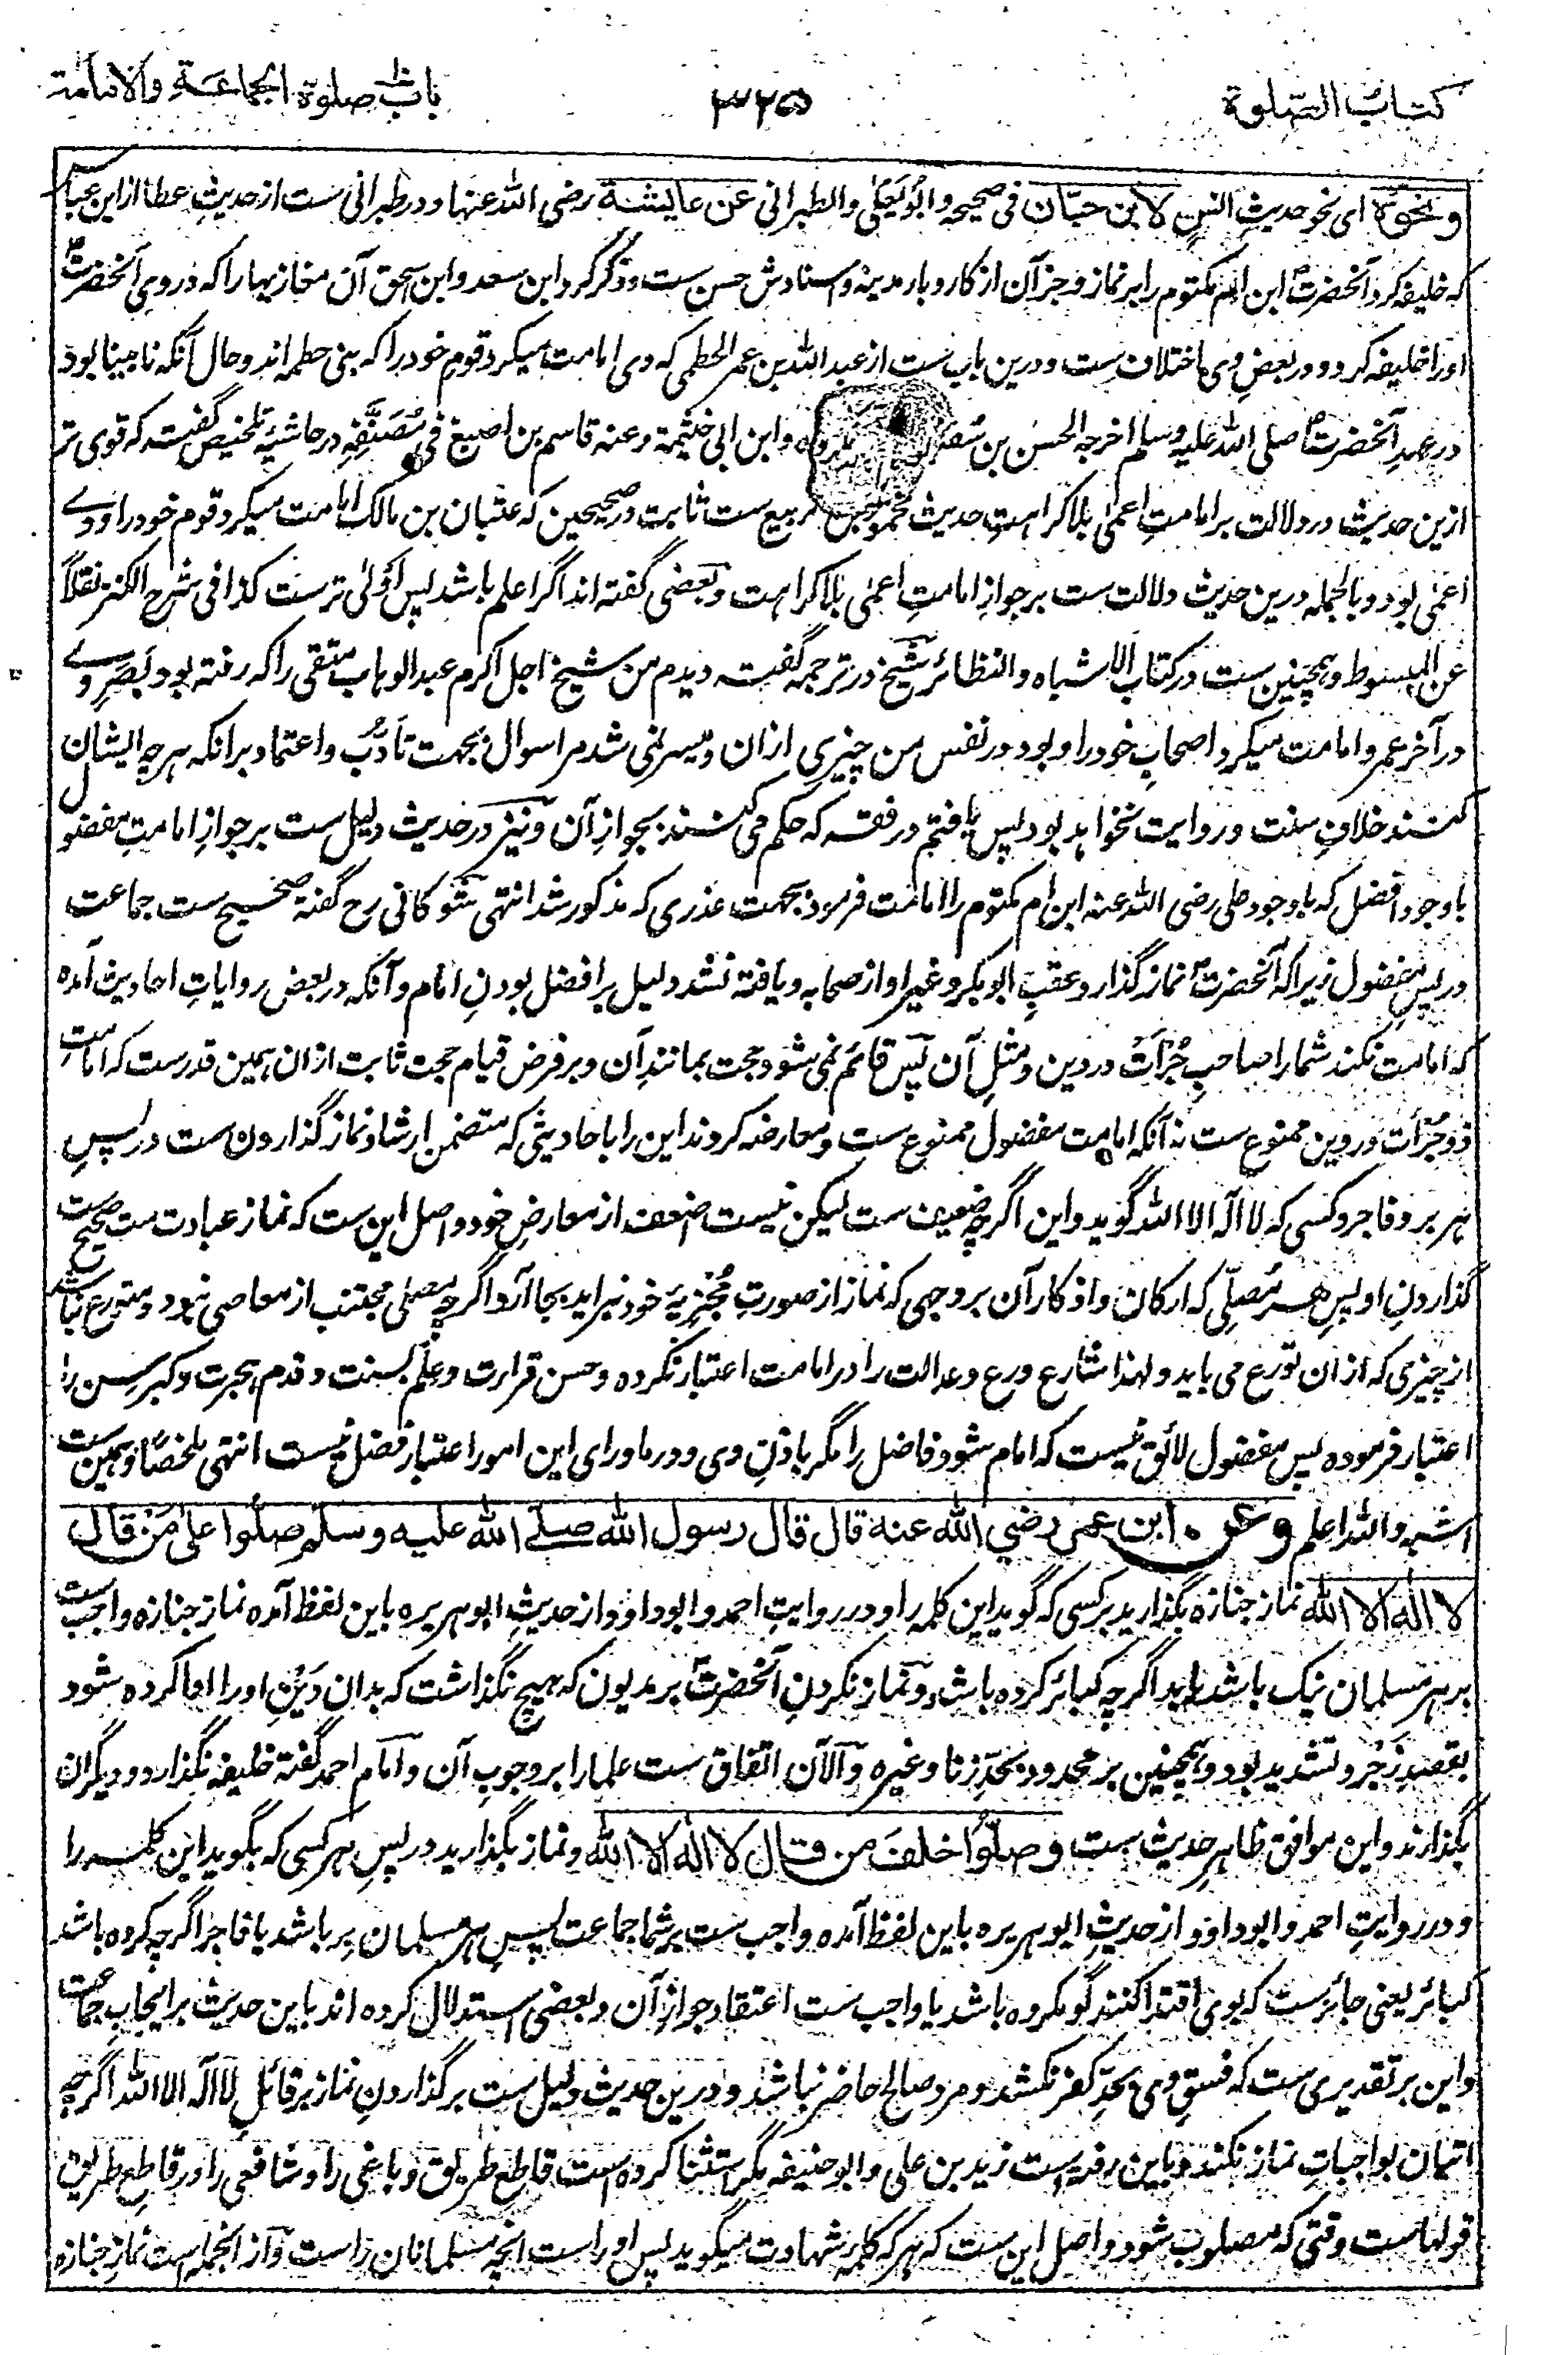 کتاب الصلوة
۳۲۵
باب صلوة الجماعة والامامة
ونحوه ای نحو حدیث انس لابن حبان فی صحیحه وابو یعلی والطبرانی عن عایشة رضی الله عنها ودر طبرانی ست از حدیث عطا از ابن عباس
که خلیفه کرد آنحضرتؐ ابن ام مکتوم را بر نماز وجز آن از کار وبار مدینه واسنادش حسن ست وذکر کرد ابن سعد وابن اسحق آن مغازیها را که در وی آنحضرتؐ
اورا خلیفه کرد ودر بعض وی اختلاف ست ودرین باب ست از عبد الله بن عمر الخطمی که وی امامت میکرد قوم خود را که بنی خطمه اند وحال آنکه نابینا بود
در عهد آنحضرتؐ صلی الله علیه وسلم اخرجه الحسن بن سفیان وابن ابی خیثمة وعنه قاسم بن اصبغ فی مُصَنَّفِهٖ در حاشیۂ تلخیص گفته که قوی تر
ازین حدیث در دلالت بر امامتِ اعمیٰ بلا کراهت حدیث محمود بن ربیع ست ثابت در صحیحین که عتبان بن مالک امامت میکرد قوم خود را ووے
اعمیٰ بود وبالجمله درین حدیث دلالت ست بر جواز امامتِ اعمیٰ بلا کراهت وبعضی گفته اند اگر اعلم باشد پس اَولیٰ ترست کذا فی شرح الکنز نقلاً
عن المبسوط وهمچنین ست در کتاب الاشباه والنظائر شیخ در ترجمه گفت دیدم من شیخ اجل اکرم عبد الوهاب متقی را که رفته بود بَصَرِ وے
در آخر عمر وامامت میکرد اصحابِ خود را وبود در نفس من چیزی ازان ومیسر نمی شد مرا سوال بجهت تاَدُّب واعتماد برانکه هر چه ایشان
کنند خلافِ سنت وروایت نخواهد بود پس یافتم در فقه که حکم می کنند بجوازِ آن ونیز در حدیث دلیل ست بر جوازِ امامتِ مفضول
با وجود افضل که با وجود علی رضی الله عنه ابن ام مکتوم را امامت فرمود بجهت عذری که مذکور شد انتهی شوکانی رح گفته صحیح ست جماعت
در پسِ مفضول زیرا که آنحضرتؐ نماز گذارد عقبِ ابو بکر وغیر او از صحابه ویافته نشد دلیل بر افضل بودنِ امام وآنکه در بعض روایاتِ احادیث آمده
که امامت نکند شما را صاحبِ جُرأت در دین ومثلِ آن پس قائم نمی شود حجت بمانندِ آن وبر فرض قیام حجت ثابت ازان همین قدر ست که امامتِ
ذو جُرأت در دین ممنوع ست نه آنکه امامت مفضول ممنوع ست ومعارضه کردند این را باحادیثی که متضمن ارشاد نماز گذاردن ست در پسِ
هر بر وفاجر وکسی که لا اله الا الله گوید واین اگرچه ضعیف ست لیکن نیست اضعف از معارضِ خود واصل این ست که نماز عبادت ست صحیح ست
گذاردنِ او پسِ هر مُصلّی که ارکان واذکار آن بر وجهی که نماز از صورتِ مُجزیه خود نبراید بجا آرد اگرچه مصلی مجتنب از معاصی نبود ومتورع نباشد
از چیزی که ازان تورع می باید ولهذا شارع ورع وعدالت را در امامت اعتبار نکرده وحسن قراءت وعلم بسنت وقدم هجرت وکبر سن را
اعتبار فرموده پس مفضول لائق نیست که امام شود فاضل را مگر باذنِ وی ودر ماورای این امور اعتبار فضل نیست انتهی ملخصاً وهمین ست
اشبه والله اعلم وعن ابن عمر رضی الله عنه قال قال رسول الله صلے الله علیه وسلم صلوا علیٰ مَنْ قال
لا اله الا الله نماز جنازه بگذارید بر کسی که گوید این کلمه را ودر روایتِ احمد وابو داود از حدیثِ ابو هریره باین لفظ آمده نماز جنازه واجب ست
بر هر مسلمان نیک باشد یا بد اگرچه کبائر کرده باشد ونماز نکردنِ آنحضرتؐ بر مدیون که هیچ نگذاشت که بدان دَیْنِ او را ادا کرده شود
بقصدِ زَجْر وتشدید بود وهمچنین بر محدود بحدِّ زنا وغیره والآن اتفاق ست علما را بر وجوبِ آن وامام احمد گفته خلیفه نگذارد ودیگران
بگذارند واین موافق ظاهرِ حدیث ست وصلّوا خلفَ من قال لا اله الا الله ونماز بگذارید در پسِ هر کسی که بگوید این کلمه را
ودر روایتِ احمد وابو داود از حدیثِ ابو هریره باین لفظ آمده واجب ست بر شما جماعت پسِ هر مسلمان بر باشد یا فاجر اگرچه کرده باشد
کبائر یعنی جائزست که بوی اقتدا کنند گو مکروه باشد یا واجب ست اعتقاد جوازِ آن وبعضی استدلال کرده اند باین حدیث بر ایجابِ جماعت
واین بر تقدیری ست که فسقِ وی بحدِّ کفر نکشد ومرد صالح حاضر نباشد ودرین حدیث دلیل ست بر گذاردنِ نماز بر قائلِ لا اله الا الله اگرچه
اتیان بواجباتِ نماز نکند وباین رفته است زید بن علی وابو حنیفه مگر استثنا کرده است قاطع طریق وباغی را وشافعی را در قاطعِ طریق
قولهاست وقتی که مصلوب شود واصل این ست که هر که کلمۂ شهادت میگوید پس اوراست انچه مسلمانان راست واز انجمله است نمازِ جنازه